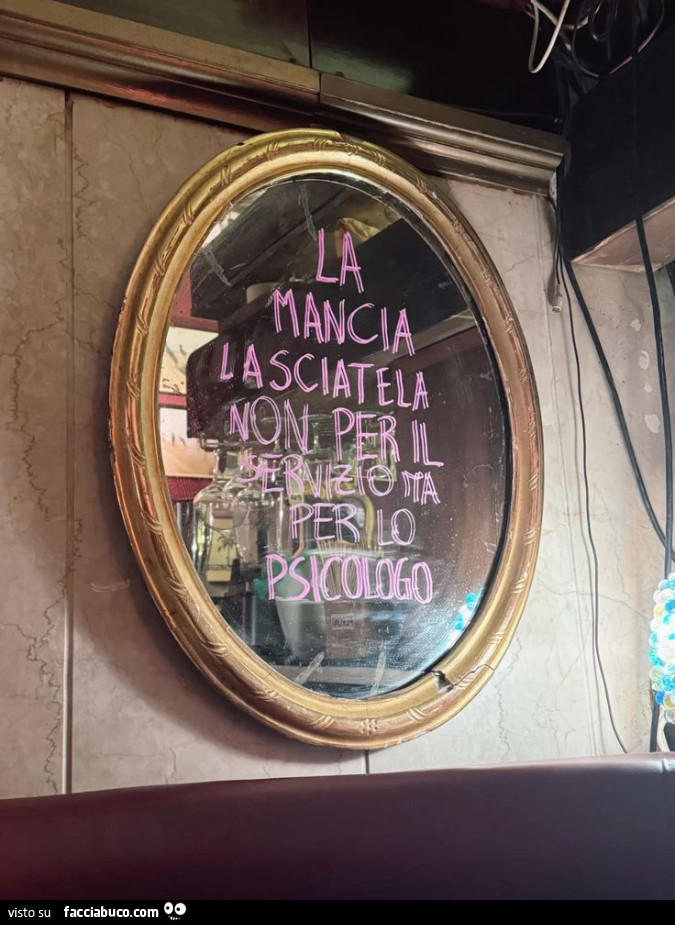 LA
MANCIA
LASCIATELA
NON PER IL
SERVIZIO MA
PER LO
PSICOLOGO
visto su facciabuco.com